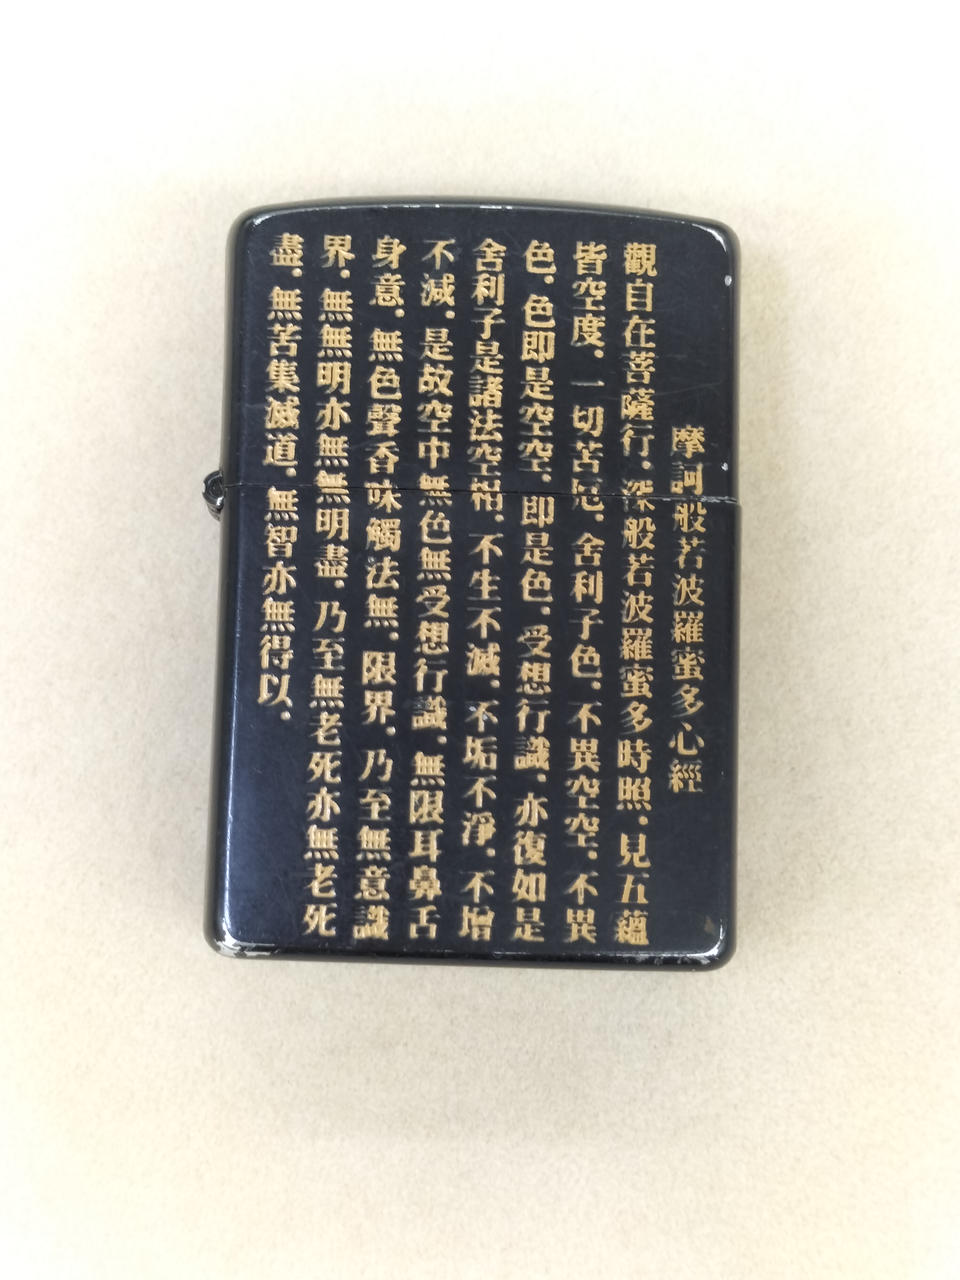 摩訶般若波羅蜜多心經
觀自在菩薩行.深般若波羅蜜多時照.見五蘊
皆空度.一切苦厄.舍利子色.不異空空.不異
色.色即是空空.即是色.受想行識.亦復如是
舍利子是諸法空相.不生不滅.不垢不淨.不增
不減.是故空中無色無受想行識.無限耳鼻舌
身意.無色聲香味觸法無.限界.乃至無意識
界.無無明亦無無明盡.乃至無老死亦無老死
盡.無苦集滅道.無智亦無得以.